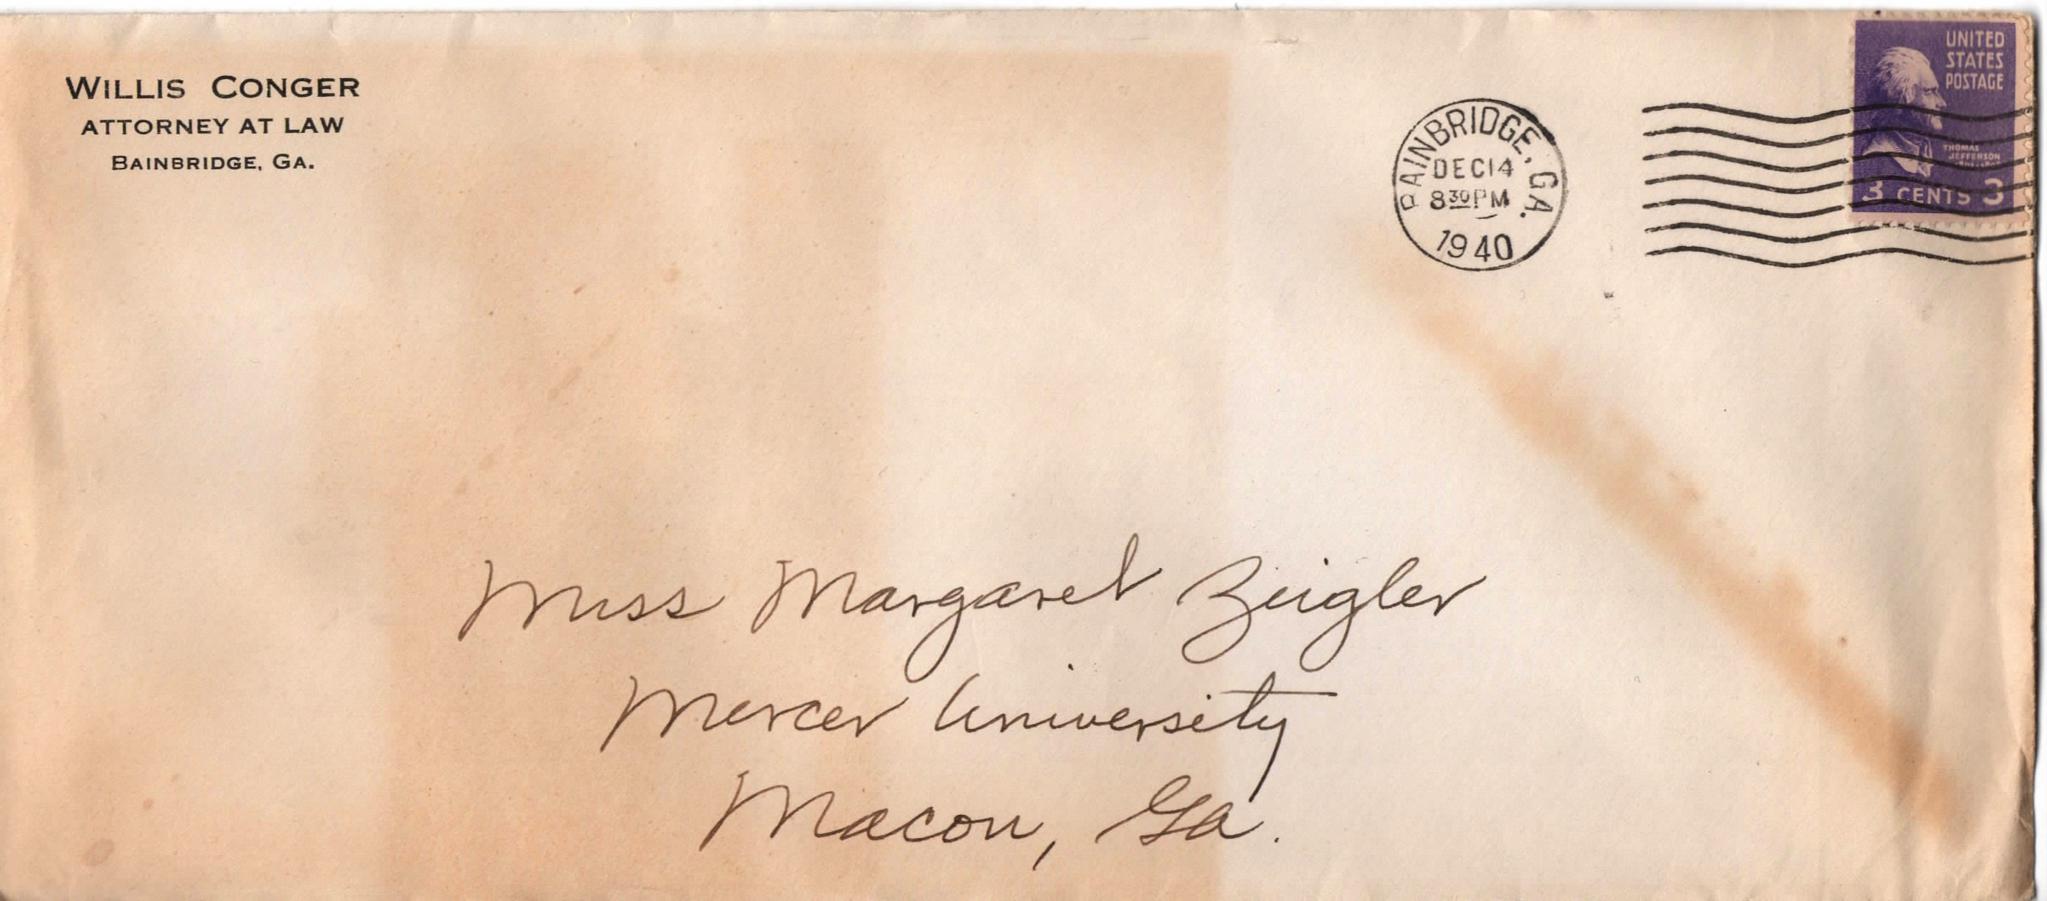 WILLIS CONGER
ATTORNEY AT LAW
BAINBRIDGE, GA.
BAINBRIDGE, GA.
DEC 14
8 30 PM
1940
UNITED
STATES
POSTAGE
THOMAS
JEFFERSON
3 CENTS 3
Miss Margaret Zeigler
Mercer University
Macon, Ga.